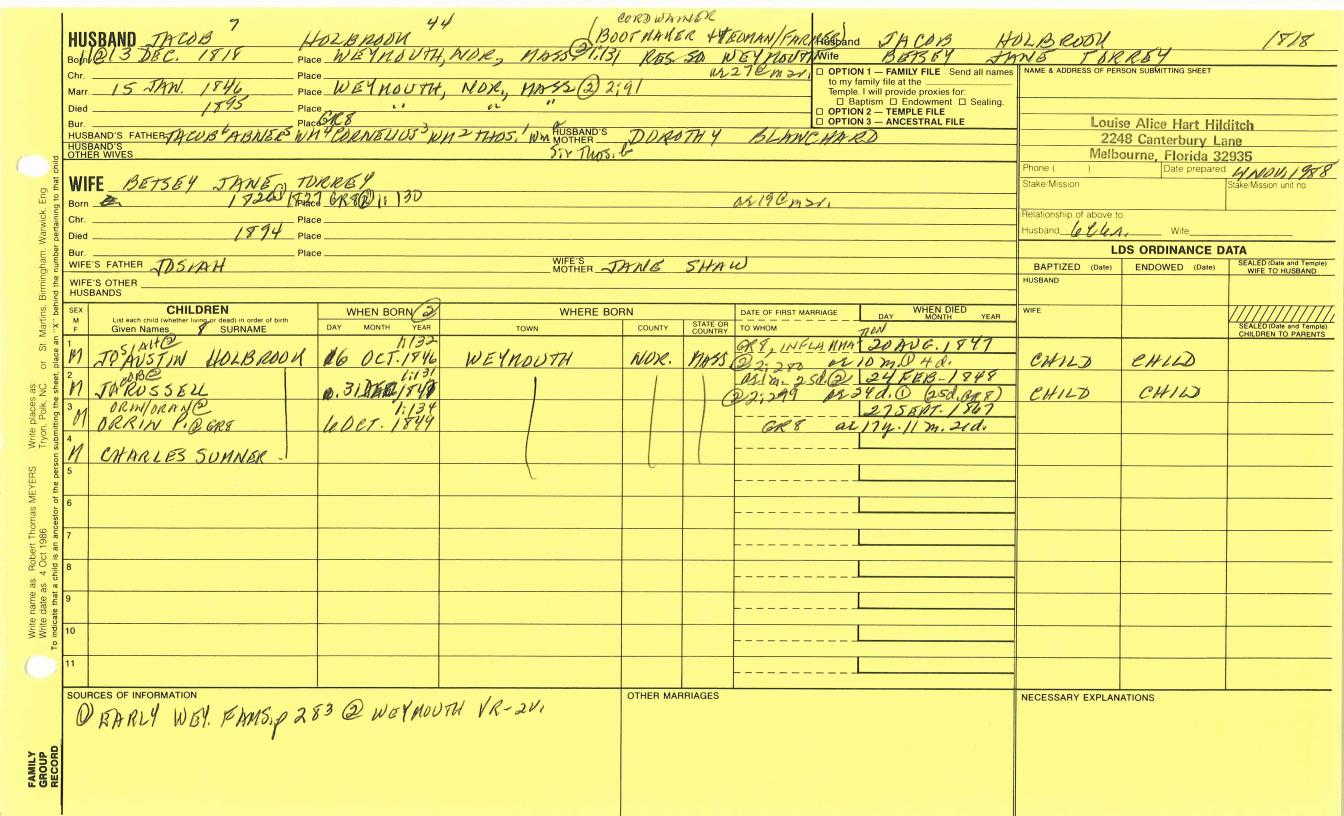 CORDWAINER
7 44 (BOOTMAKER + YEOMAN/FARMER)
HUSBAND JACOB HOLBROOK
Born ① ② 13 DEC. 1818 Place WEYMOUTH, NOR, MASS ② 1:131 RES. SO WEYMOUTH
Chr. Place
Marr 15 JAN. 1846 Place WEYMOUTH, NOR, MASS ② 2:91
Died 1895 Place " " "
Bur. Place GR8
HUSBAND'S FATHER JACOB ABNER WM CORNELIUS WM THOS. WM
HUSBAND'S MOTHER DOROTHY BLANCHARD
HUSBAND'S OTHER WIVES
Sir Thos.
WIFE BETSEY JANE TORREY
Born 1826 1827 Place GR8 ② 1:130
Chr. Place
Died 1894 Place
Bur. Place
WIFE'S FATHER JOSIAH
WIFE'S MOTHER JANE SHAW
WIFE'S OTHER HUSBANDS
Husband JACOB HOLBROOK 1818
Wife BETSEY JANE TORREY
OPTION 1 — FAMILY FILE Send all names
to my family file at the
Temple. I will provide proxies for:
Baptism Endowment Sealing.
OPTION 2 — TEMPLE FILE
OPTION 3 — ANCESTRAL FILE
NAME & ADDRESS OF PERSON SUBMITTING SHEET
Louise Alice Hart Hilditch
2248 Canterbury Lane
Melbourne, Florida 32935
Phone ( ) Date prepared 4 NOV. 1988
Stake/Mission Stake/Mission unit no.
Relationship of above to
Husband Wife
LDS ORDINANCE DATA
BAPTIZED (Date) ENDOWED (Date) SEALED (Date and Temple) WIFE TO HUSBAND
HUSBAND
WIFE
SEALED (Date and Temple) CHILDREN TO PARENTS
SEX M F
CHILDREN
List each child (whether living or dead) in order of birth
Given Names SURNAME
WHEN BORN ②
DAY MONTH YEAR
WHERE BORN
TOWN COUNTY STATE OR COUNTRY
DATE OF FIRST MARRIAGE
TO WHOM
WHEN DIED
DAY MONTH YEAR
1 JOSIAH ② 1:132 GR8, INFLAMMATION 20 AUG. 1847
M AUSTIN HOLBROOK 6 OCT. 1846 WEYMOUTH NOR. MASS ② 2:280 10 m. ① 4 d. CHILD CHILD
2 JACOB ② 1:131 1m. 25d. ② 24 FEB. 1848
M RUSSELL 31 DEC 1847 ② 2:279 24d. ① (25d. GR8) CHILD CHILD
3 ORIN/ORAN ② 1:134 27 SEPT. 1867
M ORRIN P. @ GR8 6 OCT. 1849 GR8 17y. 11 m. 21d.
4
M CHARLES SUMNER
5
6
7
8
9
10
11
SOURCES OF INFORMATION
① EARLY WEY. FAMS. p 283 ② WEYMOUTH VR-2V.
OTHER MARRIAGES
NECESSARY EXPLANATIONS
Write name as Robert Thomas MEYERS Write places as Tryon, Polk, NC or St Martins, Birmingham, Warwick, Eng
Write date as 4 Oct 1986
To indicate that a child is an ancestor of the person submitting the sheet, place an "X" behind the number pertaining to that child
FAMILY GROUP RECORD